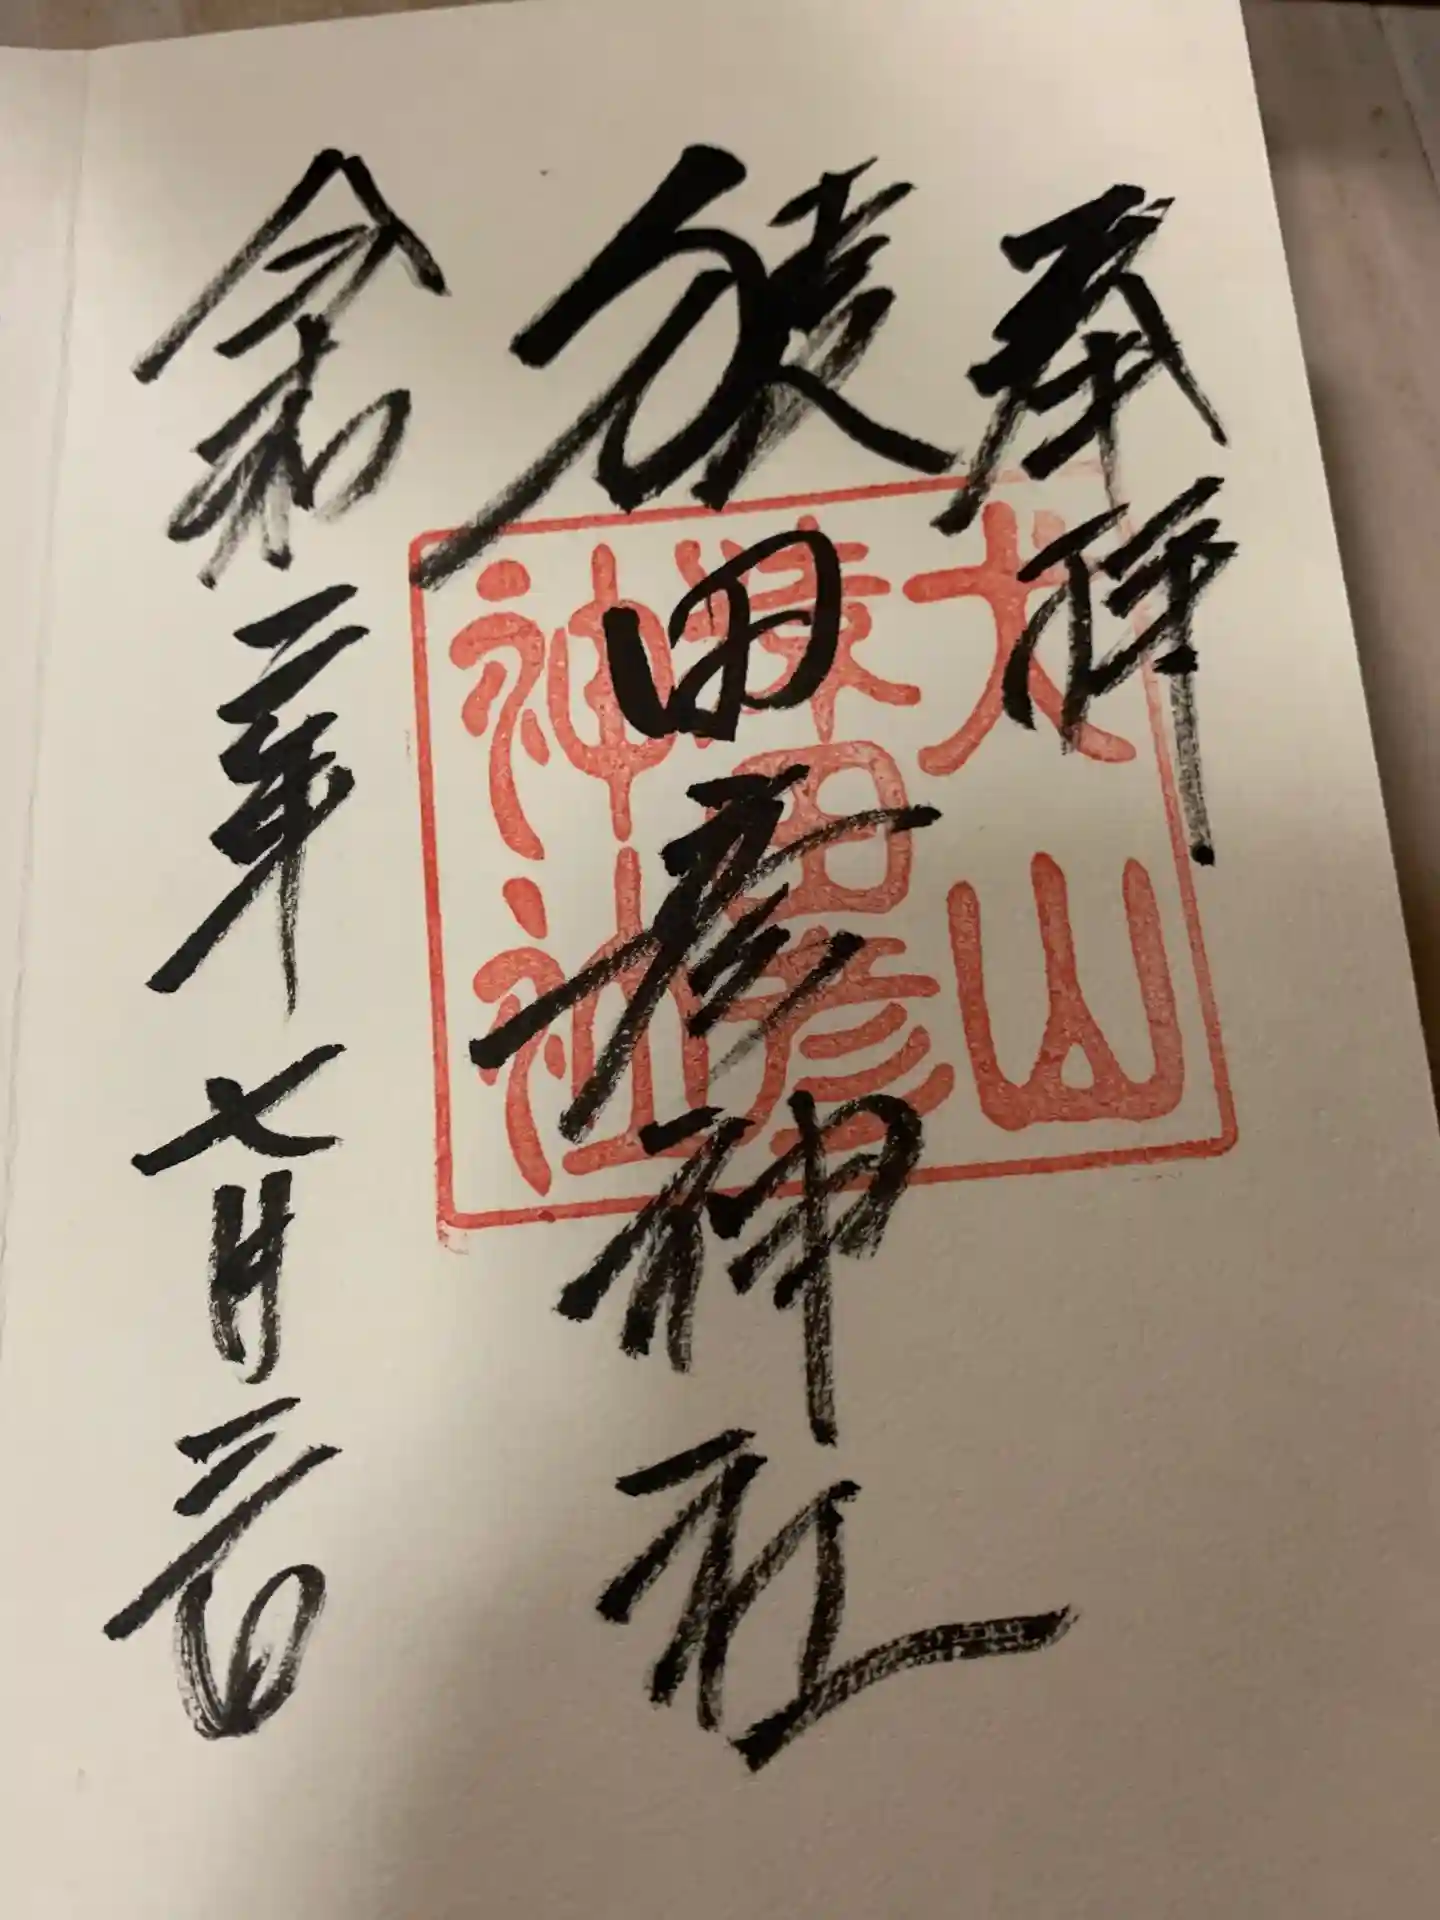 奉拝
猿田彦神社
令和二年七月三日
犬山
猿田彦
神社